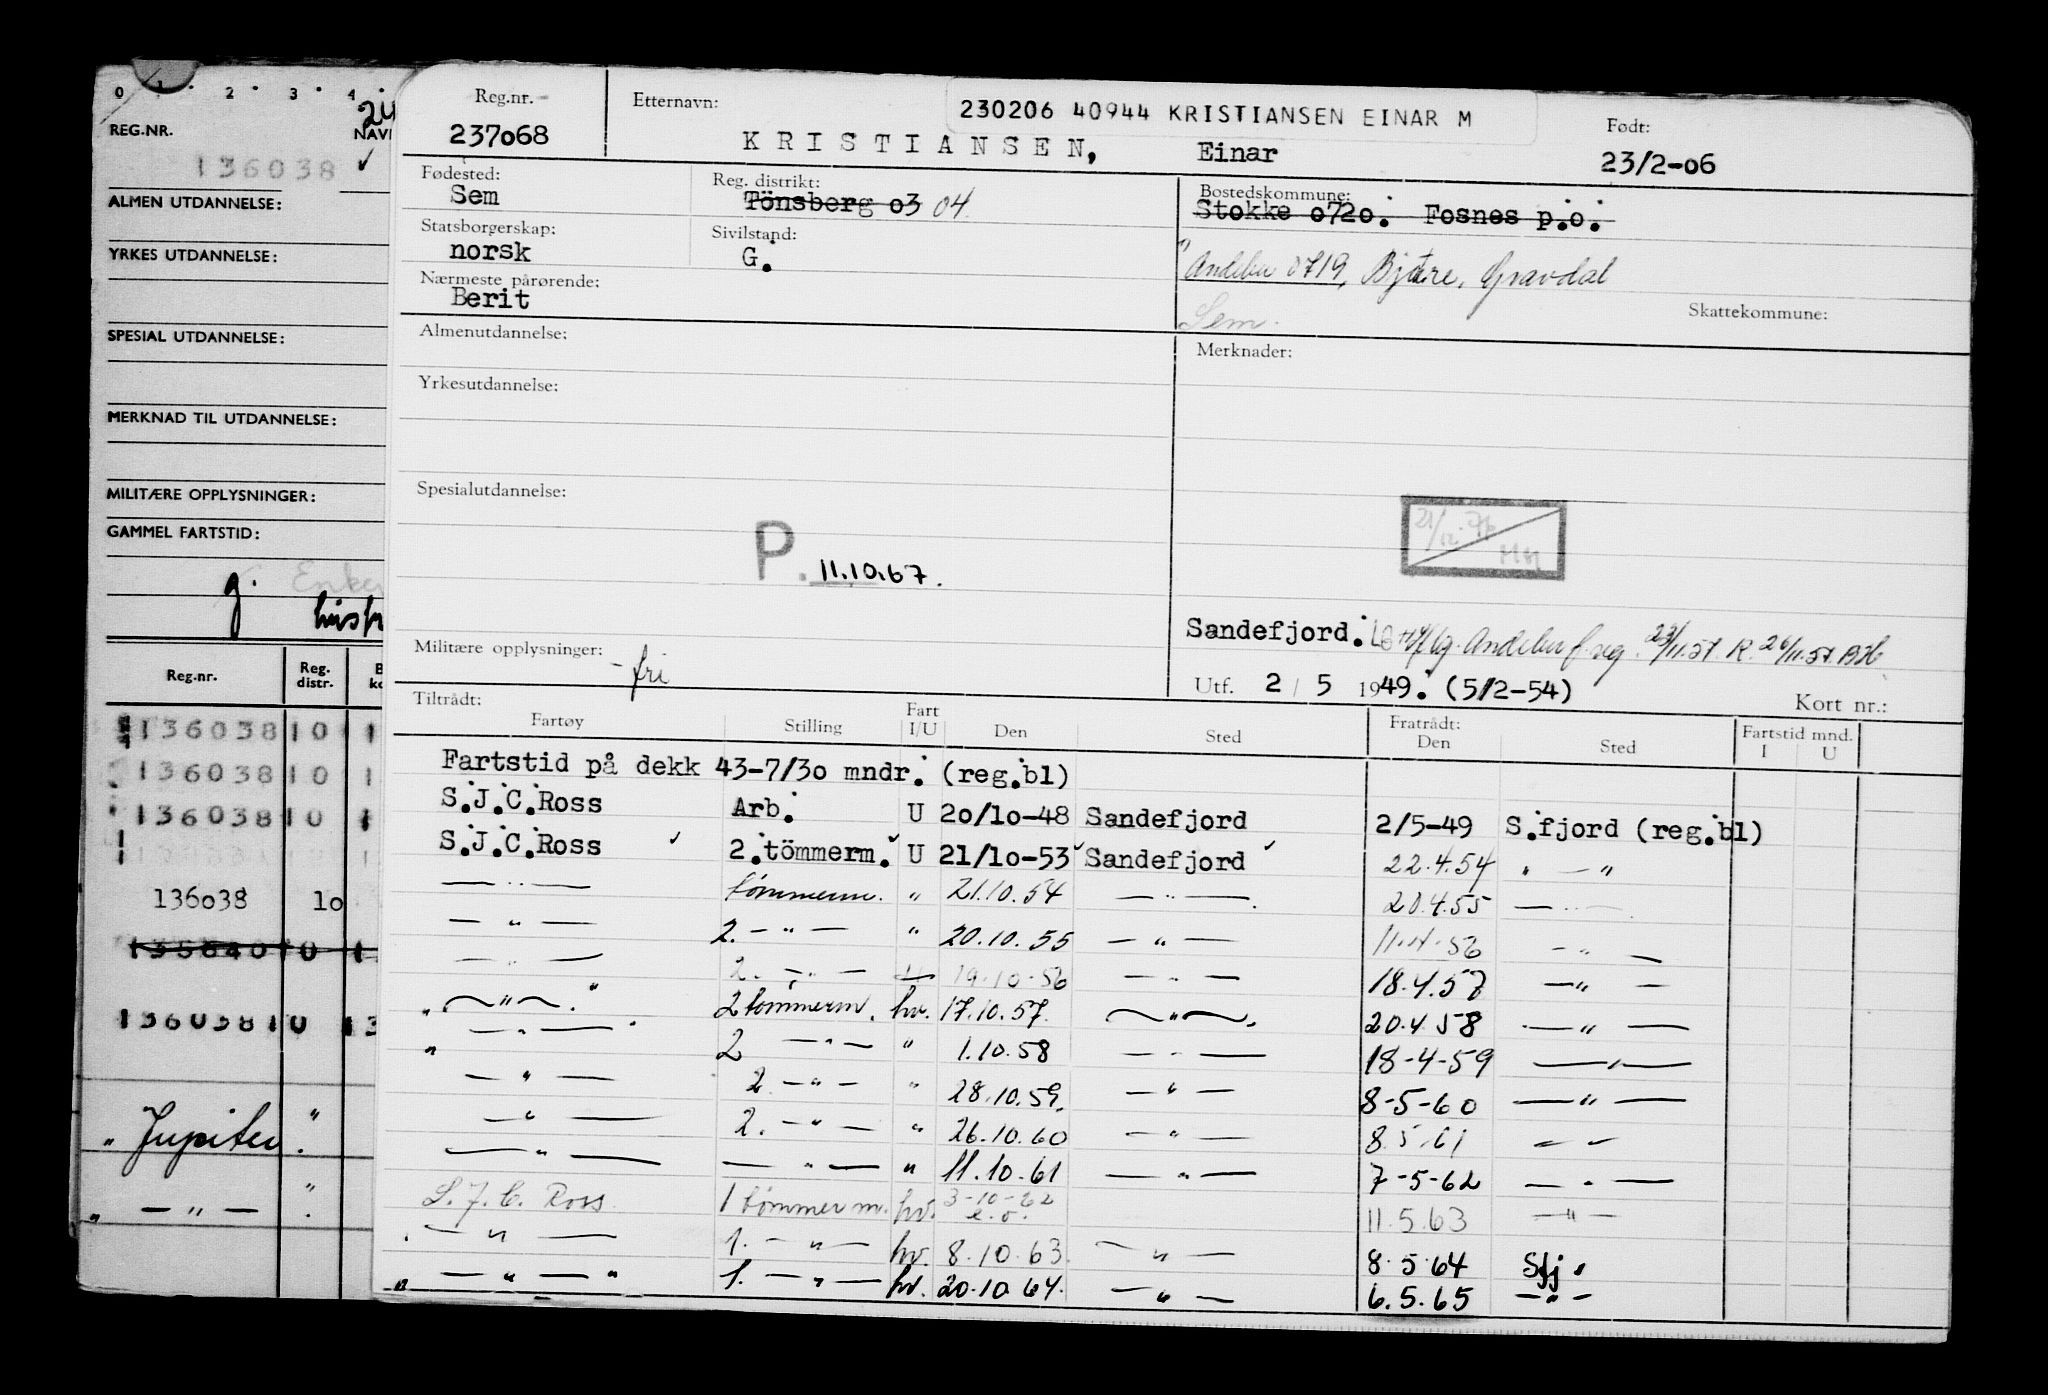 0 1 2 3 4
REG.NR.
NAV
136038 ✓
ALMEN UTDANNELSE:
YRKES UTDANNELSE:
SPESIAL UTDANNELSE:
MERKNAD TIL UTDANNELSE:
MILITÆRE OPPLYSNINGER:
GAMMEL FARTSTID:
g.
Reg.nr. Reg. distr.
136038 10 1
136038 10 1
136038 10 1
136038 10
135840 10 1
136038 10 13
" Jupiter "
" — " — "
Reg.nr. Etternavn: 230206 40944 KRISTIANSEN EINAR M Født:
237068 KRISTIANSEN, Einar 23/2-06
Fødested: Reg. distrikt: Bostedskommune:
Sem Tönsberg 03 04 Stokke 0720. Fosnes p.o.
Statsborgerskap: Sivilstand:
norsk G. " Andebu 0719, Gravdal
Nærmeste pårørende:
Berit Sem. Skattekommune:
Almenutdannelse: Merknader:
Yrkesutdannelse:
Spesialutdannelse:
21/12-76
P. 11.10.67.
Sandefjord. Andebu f. reg. 23/11.57. R. 26/11.57
Militære opplysninger: - fri
Utf. 2 / 5 1949. (5/2-54) Kort nr.:
Tiltrådt: Fratrådt: Fartstid mnd.
Fartøy Stilling Fart I/U Den Sted Den Sted I U
Fartstid på dekk 43-7/30 mndr. (reg.bl)
S.J.C.Ross Arb. U 20/10-48 Sandefjord 2/5-49 S.fjord (reg.bl)
S.J.C.Ross ✓ 2.tömmerm. ✓ U 21/10-53 ✓ Sandefjord ✓ 22.4.54 " — "
— " — tømmerm. " 21.10.54 — " — 20.4.55 — " —
— " — 2. — " — " 20.10.55 — " — 11.4.56 — " —
— " — 2. — " — U 19.10.56 — " — 18.4.57 — " —
" — " — " 2 tømmerm. hv. 17.10.57. — " — 20.4.58 — " —
" — " — 2 — " — " 1.10.58 — " — 18-4-59 — " —
— " — 2. — " — " 28.10.59. — " — 8-5-60 — " —
— " — 2. — " — " 26.10.60 — " — 8.5.61 — " —
— " — — " — " 11.10.61 — " — 7-5-62 — " —
S. J. C. Ross 1 tømmerm. hv. 3-10-62 e.o. 11.5.63 — " —
— " — 1. — " — hv. 8.10.63. — " — 8.5.64 Sfj.
" — " — " 1. — " — hv. 20.10.64. — " — 6.5.65 — " —